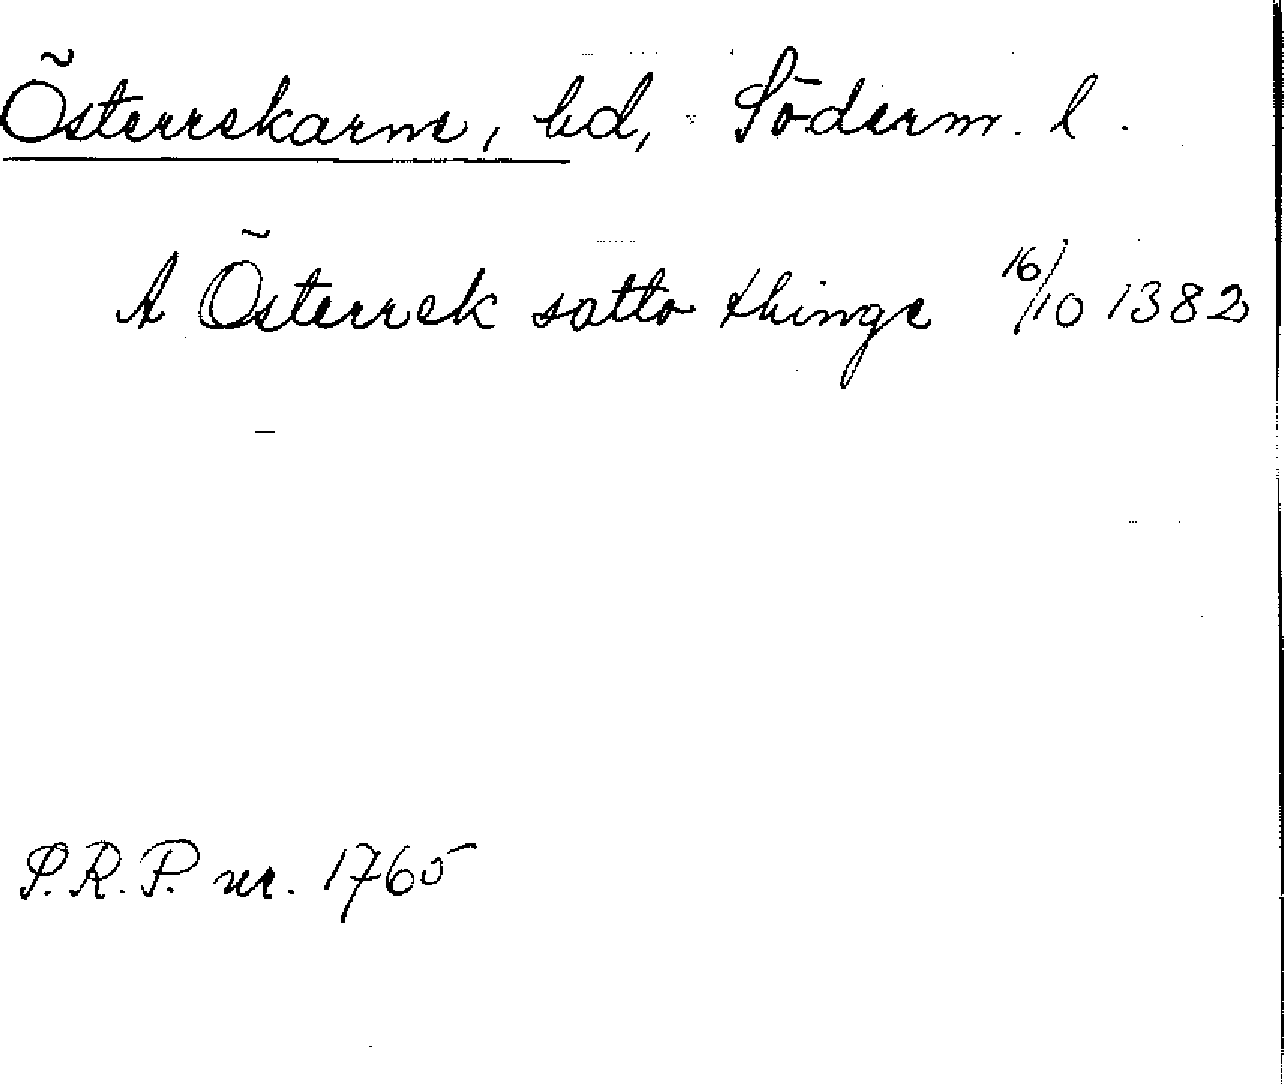 Österrekarne, hd, Söderm. l.
A Österrek satto thinge 16/10 1382
S.R.P. nr. 1765